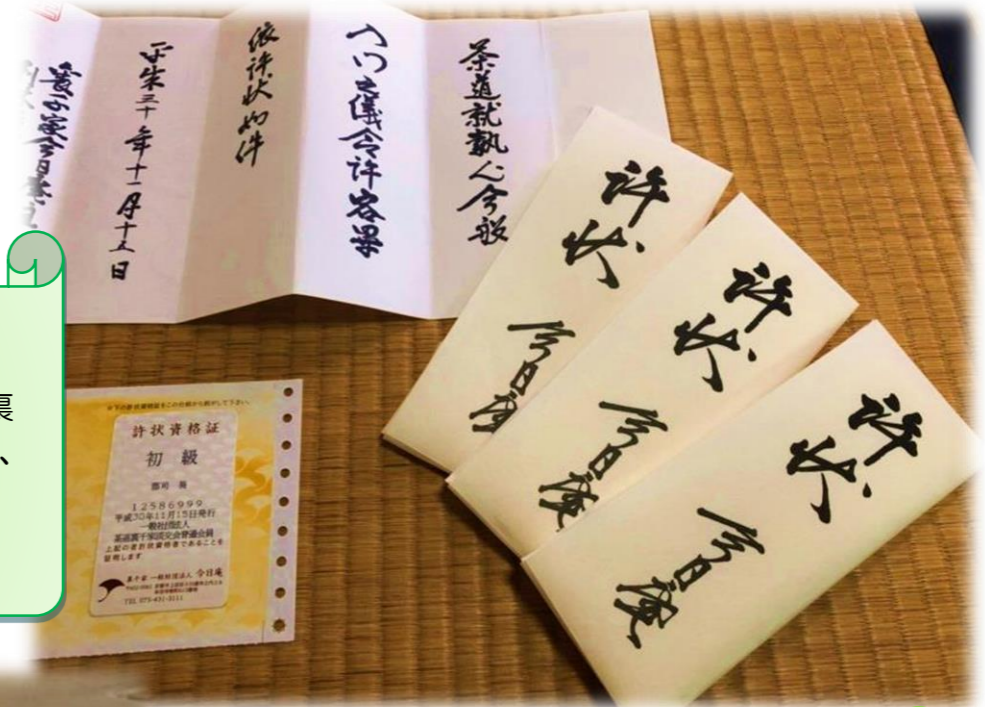 茶道就執心今般
入門之儀令許容畢
依許状如件
平成三十年十一月十五日
裏千家今日庵
許状 今日庵
許状 今日庵
許状 今日庵
裏
、
許状資格証
初 級
12586999
平成30年11月15日発行
一般社団法人
茶道裏千家淡交会普通会員
上記の者許状資格者であることを
証明します
裏千家 一般財団法人 今日庵
TEL 075-431-3111